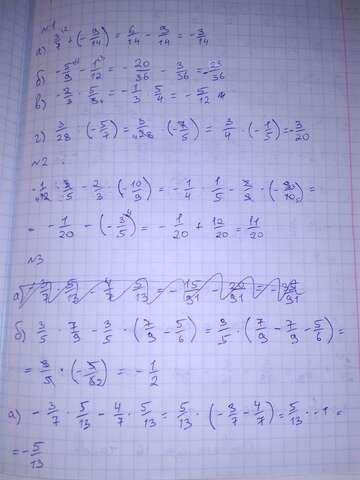 №1
а) 3/7 + (- 9/14) = 6/14 - 9/14 = - 3/14
б) - 5/9 - 1/12 = - 20/36 - 3/36 = - 23/36
в) - 2/3 · 5/8 = - 1/3 · 5/4 = - 5/12
г) 3/28 · (- 5/7) = 3/28 · (- 7/5) = 3/4 · (- 1/5) = - 3/20
№2
= - 1/20 - (- 3/5) = - 1/20 + 12/20 = 11/20
№3
б) 3/5 · 7/9 - 3/5 · (7/9 - 5/6) = 3/5 · (7/9 - 7/9 - 5/6) =
= - 1/2
а) - 3/7 · 5/13 - 4/7 · 5/13 = 5/13 · (- 3/7 - 4/7) = 5/13 · -1 =
= - 5/13